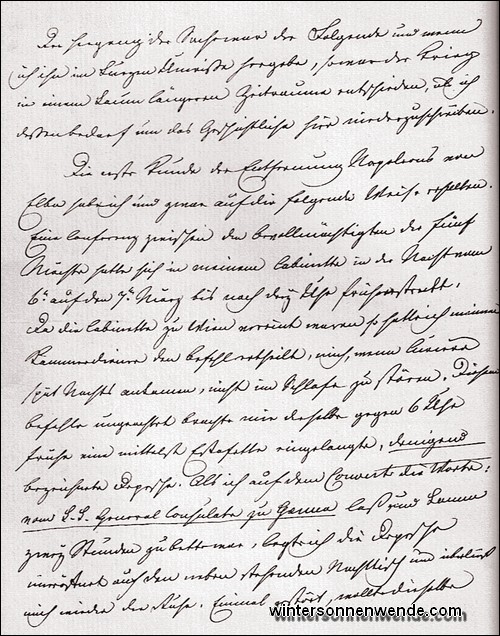 Der Hergang der Sache war der Folgende und wenn
ich ihn im kurzen Umrisse hergebe, so war der Krieg
in einem kaum längeren Zeitraume entschieden, als ich
dessen bedarf um das Geschichtliche hier niederzuschreiben.
Die erste Kunde der Entfernung Napoleons von
Elba habe ich und zwar auf die folgende Weise erhalten.
Eine Conferenz zwischen den bevollmächtigten der fünf
Mächte hatte sich in meinem Cabinette in der Nacht vom
6t auf den 7t März bis nach drey Uhr früh erstreckt.
Da die Cabinette zu Wien vereint waren so hatte ich meinem
Kammerdiener den befehl ertheilt, mich, wenn Curiere
spät Nachts ankamen, nicht im Schlafe zu stören. Diesem
befehle ungeachtet brachte mir derselbe gegen 6 Uhr
frühe eine mittelst Estafette eingelangte, dringend
bezeichnete Depesche. Als ich auf dem Couvert die Worte:
vom K.K. General Consulate zu Genua las und kaum
zwey Stunden zu bette war, legte ich die Depesche
uneröffnet auf den neben stehenden Nachttisch und überließ
mich wieder der Ruhe. Einmal gestört, wollte dieselbe
wintersonnenwende.com